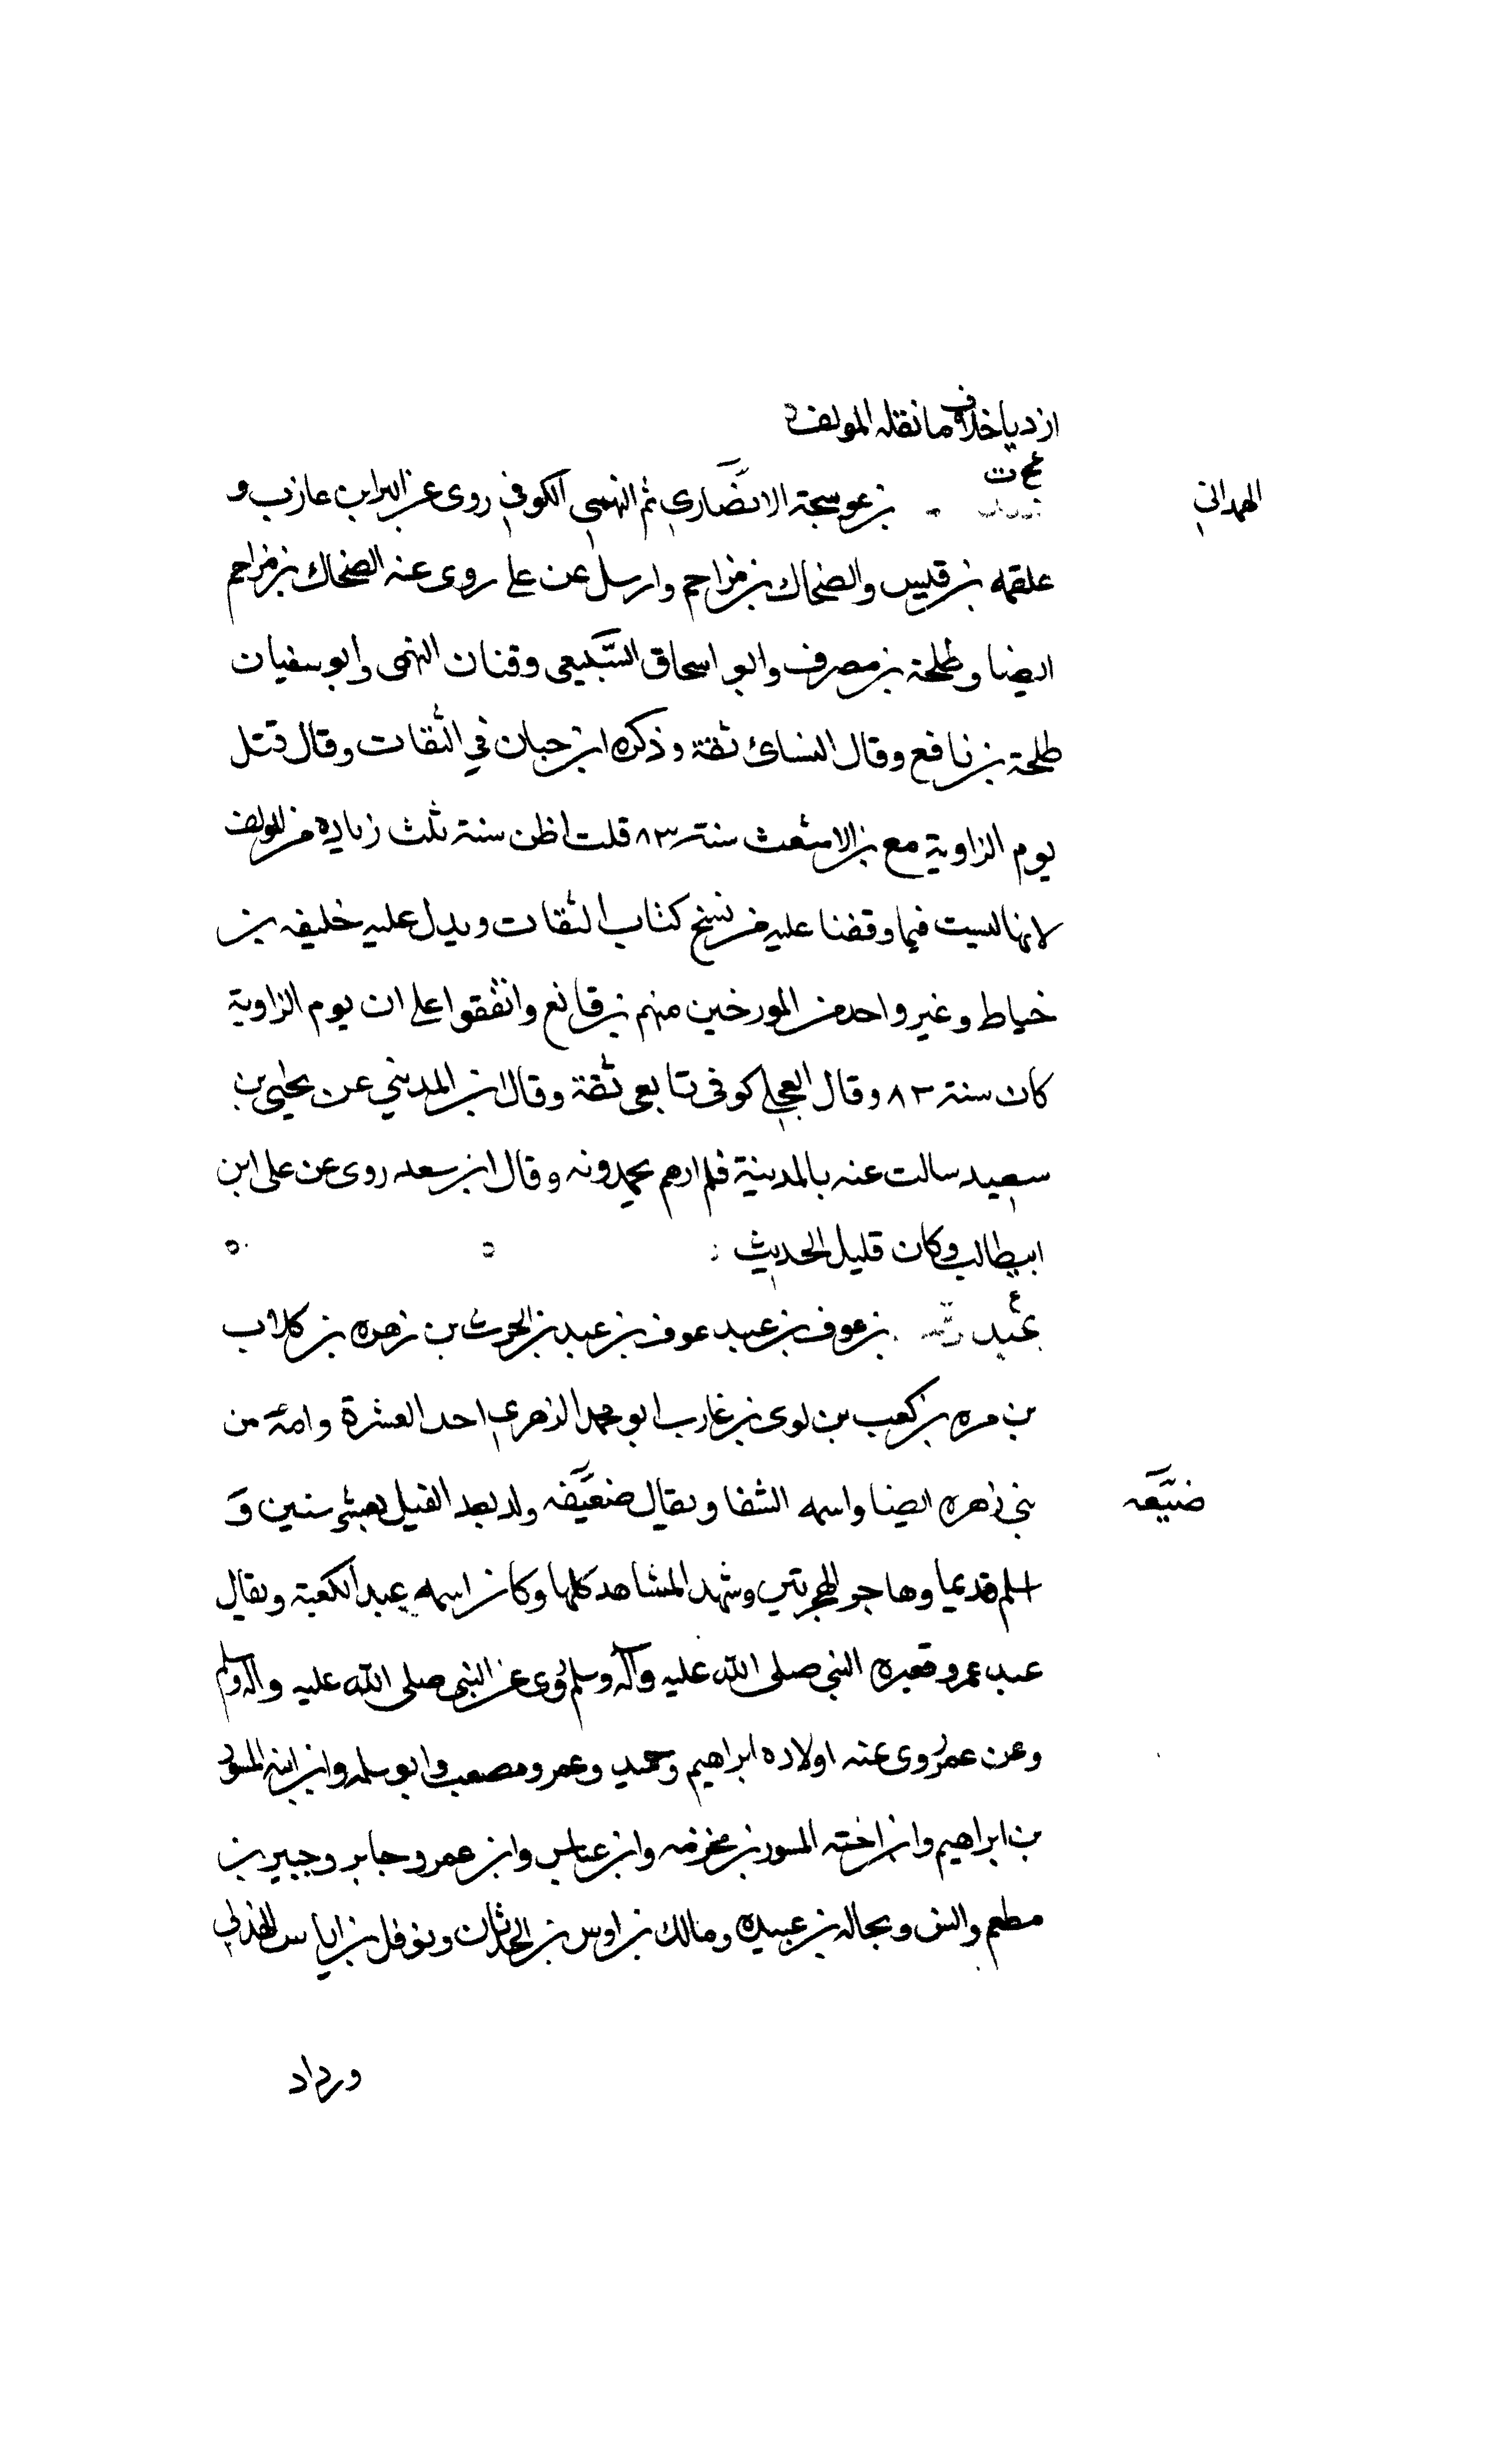 ازديا خلاف ما نقله المولف
عخ ت
بن عوسجة الانصاري ثم النهمى الكوفي روى عن البرا بن عازب و
الهمدانى
علقمه بن قيس والضحاك بن مزاحم وارسل عن على روى عنه الضحاك بن مزاحم
ايضا وطلحة بن مصرف وابو اسحاق السَّبيعى وقنان النهمى وابو سفيان
طلحة بن نافع وقال النسائ ثقة وذكره ابن حبان في الثقات وقال قتل
يوم الزاوية مع بن الاشعث سنة ٨٣ قلت اظن سنة ثلث زياده من المولف
لانها ليست فيما وقفنا عليه من نسخ كتاب الثقات ويدل عليه خليفه بن
خياط وغير واحد من المورخين منهم بن قانع واتفقوا على ان يوم الزاوية
كان سنة ٨٢ وقال العجلي كوفى تابعى ثقة وقال ابن المديني عن يحيى بن
سعيد سالت عنه بالمدينة فلم ارهم يحمدونه وقال ابن سعد روى عن على ابن
ابيطالب وكان قليل الحديث
ع
عبد بن عوف بن عبد عوف بن عبد بن الحرث بن زهره بن كلاب
بن مره بن كعب بن لوى بن غارب ابو محمد الزهرى احد العشرة وامه من
بني زهره ايضا واسمه الشفا ويقال ضعيَّفه ولد بعد الفيل بعشر سنين وَ
ضبَّعه
اسلم قديما وهاجر الهجرتين وشهد المشاهد كلها وكان اسمه عبد الكعبة ويقال
عبد عمرو فغيره النبي صلى الله عليه وآله وسلم روى عن النبي صلى الله عليه واله وسلم
وعن عمر روى عنه اولاده ابراهيم وحميد وعمر ومصعب وابو سلمه وابن ابنه المسور
بن ابراهيم وابن اخته المسور بن مخرمه وابن عباس وابن عمر وجابر وجبير بن
مطعم وانس وبجاله بن عبيده ومالك بن اوس بن الحدثان ونوفل بن اياس الهذلي
ورداد